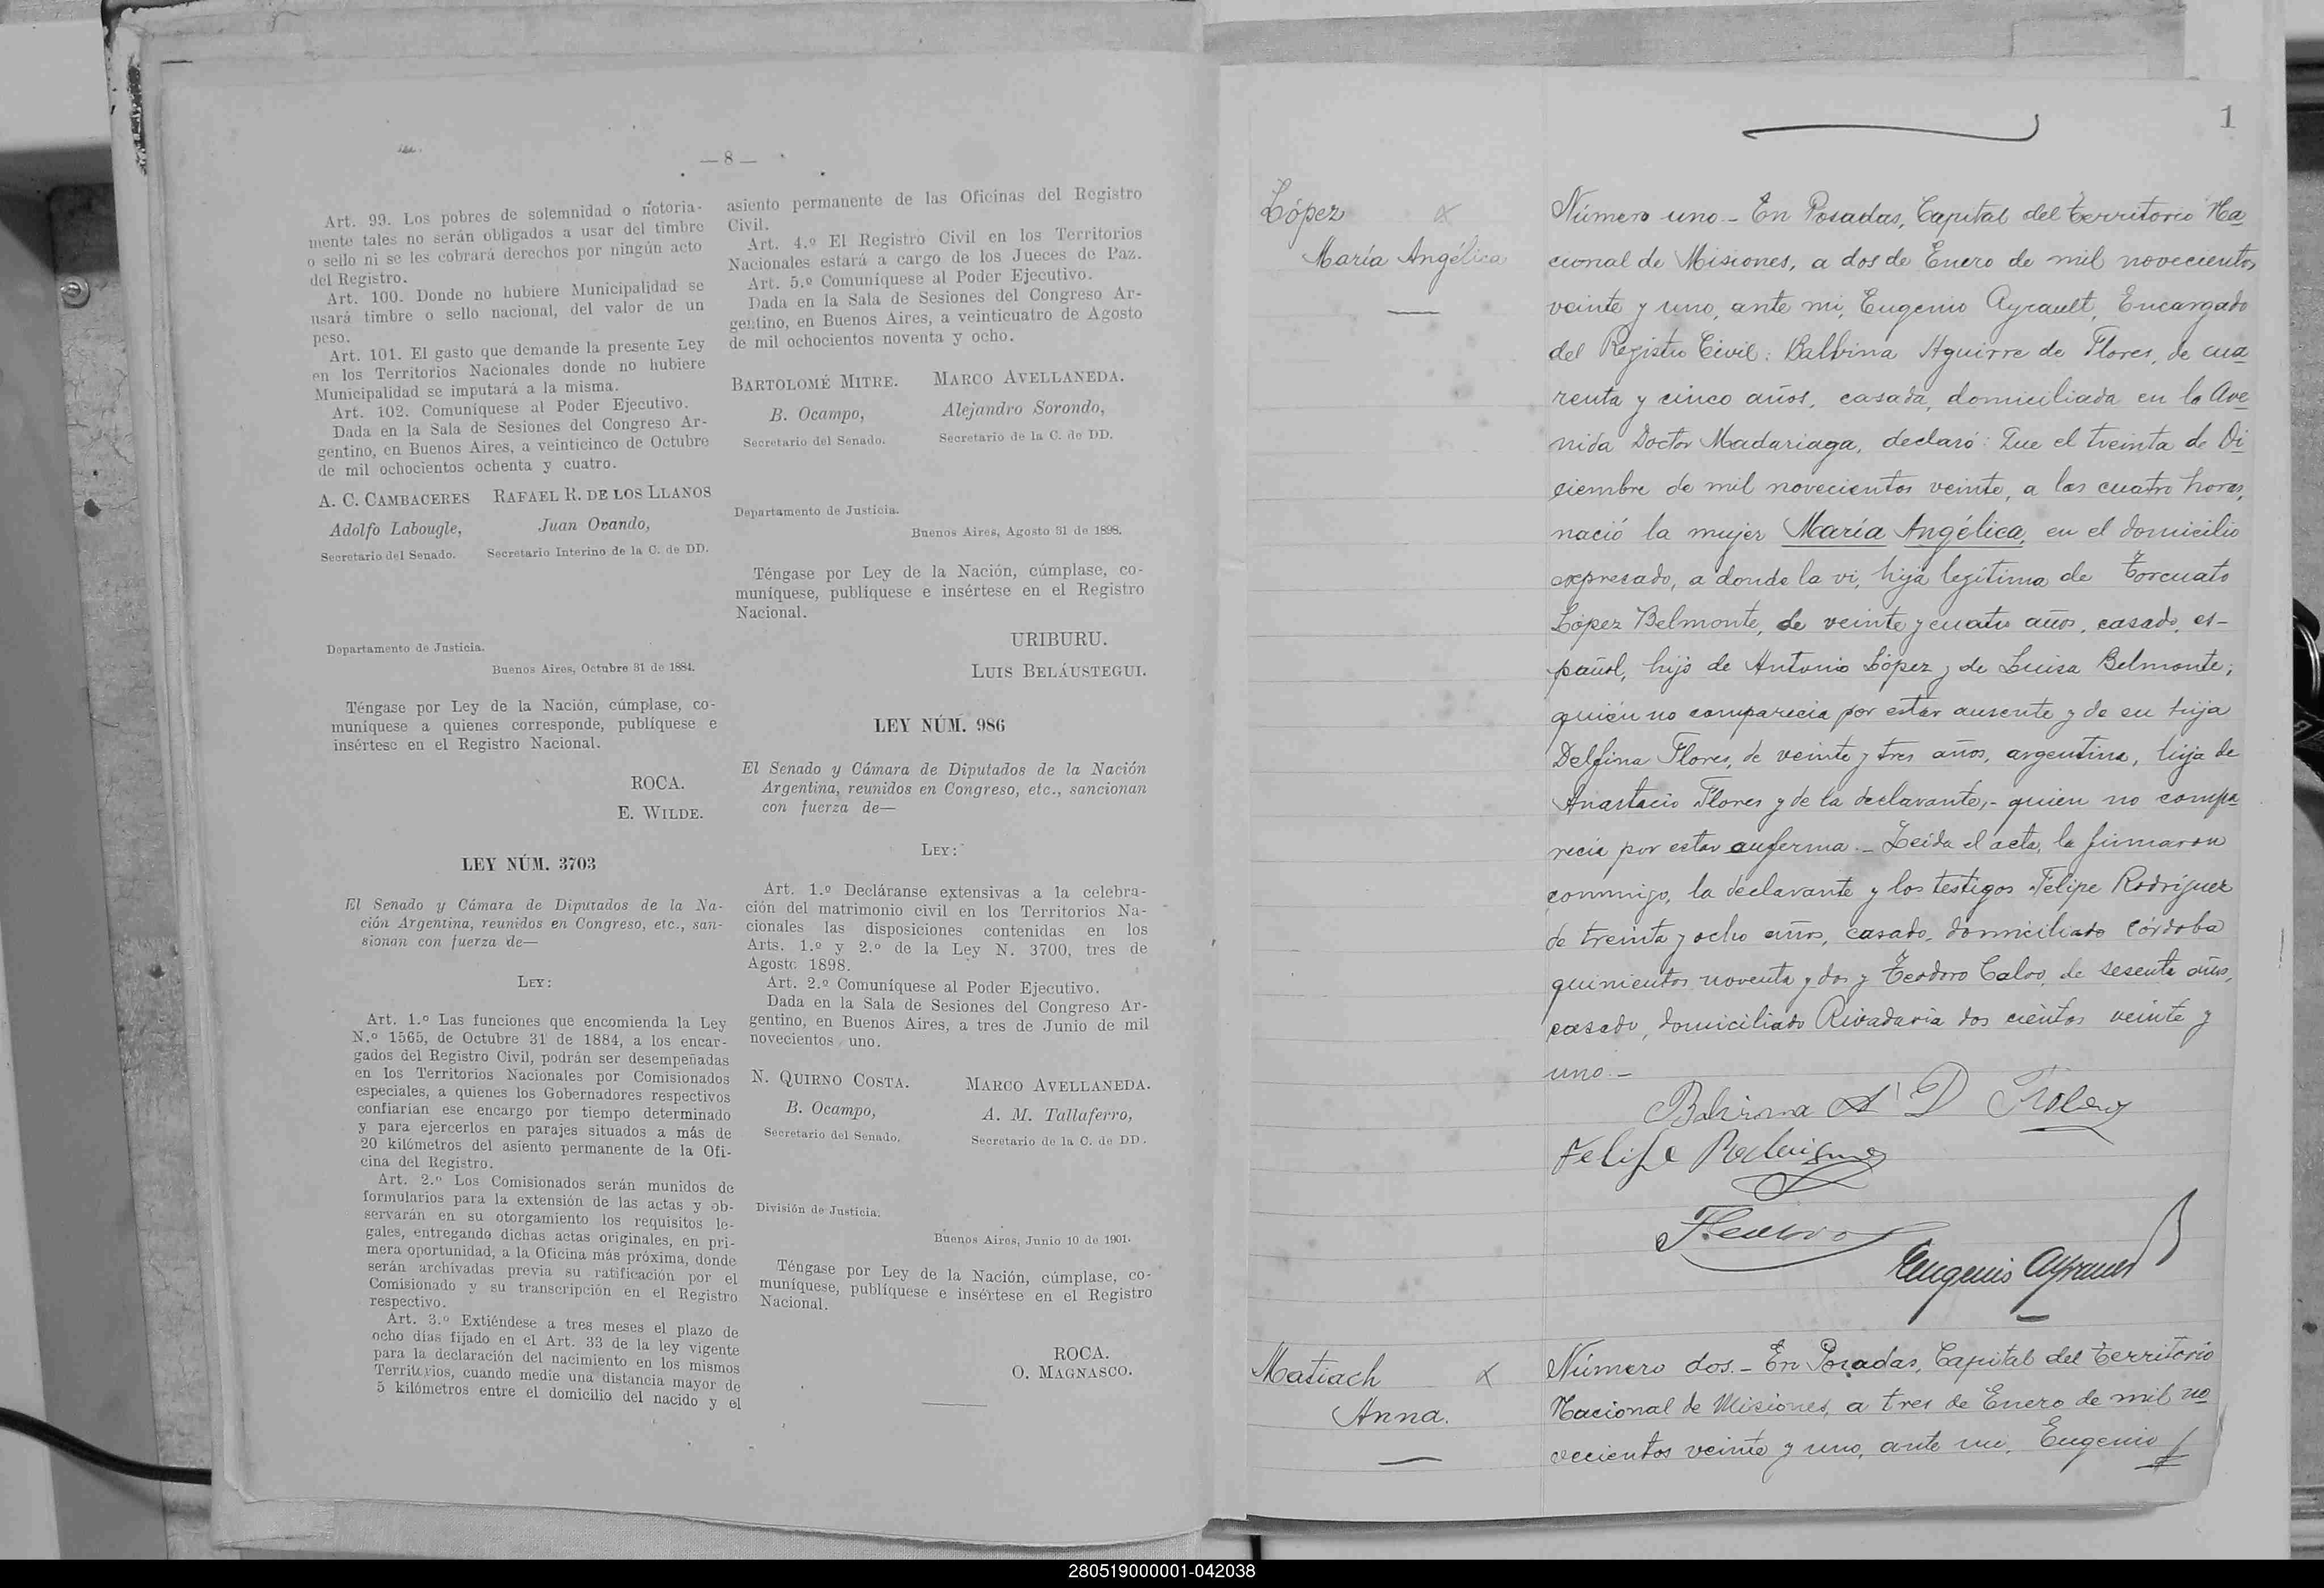 — 8 —
Art. 99. Los pobres de solemnidad o notoria-
mente tales no serán obligados a usar del timbre
o sello ni se les cobrará derechos por ningún acto
del Registro.
Art. 100. Donde no hubiere Municipalidad se
usará timbre o sello nacional, del valor de un
peso.
Art. 101. El gasto que demande la presente Ley
en los Territorios Nacionales donde no hubiere
Municipalidad se imputará a la misma.
Art. 102. Comuníquese al Poder Ejecutivo.
Dada en la Sala de Sesiones del Congreso Ar-
gentino, en Buenos Aires, a veinticinco de Octubre
de mil ochocientos ochenta y cuatro.
A. C. CAMBACERES RAFAEL R. DE LOS LLANOS
Adolfo Labougle, Juan Ovando,
Secretario del Senado. Secretario Interino de la C. de DD.
Departamento de Justicia.
Buenos Aires, Octubre 31 de 1884.
Téngase por Ley de la Nación, cúmplase, co-
muníquese a quienes corresponde, publíquese e
insértese en el Registro Nacional.
ROCA.
E. WILDE.
LEY NÚM. 3703
El Senado y Cámara de Diputados de la Na-
ción Argentina, reunidos en Congreso, etc., san-
sionan con fuerza de—
LEY:
Art. 1.º Las funciones que encomienda la Ley
N.º 1565, de Octubre 31 de 1884, a los encar-
gados del Registro Civil, podrán ser desempeñadas
en los Territorios Nacionales por Comisionados
especiales, a quienes los Gobernadores respectivos
confiarían ese encargo por tiempo determinado
y para ejercerlos en parajes situados a más de
20 kilómetros del asiento permanente de la Ofi-
cina del Registro.
Art. 2.º Los Comisionados serán munidos de
formularios para la extensión de las actas y ob-
servarán en su otorgamiento los requisitos le-
gales, entregando dichas actas originales, en pri-
mera oportunidad, a la Oficina más próxima, donde
serán archivadas previa su ratificación por el
Comisionado y su transcripción en el Registro
respectivo.
Art. 3.º Extiéndese a tres meses el plazo de
ocho días fijado en el Art. 33 de la ley vigente
para la declaración del nacimiento en los mismos
Territorios, cuando medie una distancia mayor de
5 kilómetros entre el domicilio del nacido y el
asiento permanente de las Oficinas del Registro
Civil.
Art. 4.º El Registro Civil en los Territorios
Nacionales estará a cargo de los Jueces de Paz.
Art. 5.º Comuníquese al Poder Ejecutivo.
Dada en la Sala de Sesiones del Congreso Ar-
gentino, en Buenos Aires, a veinticuatro de Agosto
de mil ochocientos noventa y ocho.
BARTOLOMÉ MITRE. MARCO AVELLANEDA.
B. Ocampo, Alejandro Sorondo,
Secretario del Senado. Secretario de la C. de DD.
Departamento de Justicia.
Buenos Aires, Agosto 31 de 1898.
Téngase por Ley de la Nación, cúmplase, co-
muníquese, publíquese e insértese en el Registro
Nacional.
URIBURU.
LUIS BELÁUSTEGUI.
LEY NÚM. 986
El Senado y Cámara de Diputados de la Nación
Argentina, reunidos en Congreso, etc., sancionan
con fuerza de—
LEY:
Art. 1.º Decláranse extensivas a la celebra-
ción del matrimonio civil en los Territorios Na-
cionales las disposiciones contenidas en los
Arts. 1.º y 2.º de la Ley N. 3700, tres de
Agosto 1898.
Art. 2.º Comuníquese al Poder Ejecutivo.
Dada en la Sala de Sesiones del Congreso Ar-
gentino, en Buenos Aires, a tres de Junio de mil
novecientos uno.
N. QUIRNO COSTA. MARCO AVELLANEDA.
B. Ocampo, A. M. Tallaferro,
Secretario del Senado. Secretario de la C. de DD.
División de Justicia.
Buenos Aires, Junio 10 de 1901.
Téngase por Ley de la Nación, cúmplase, co-
muníquese, publíquese e insértese en el Registro
Nacional.
ROCA.
O. MAGNASCO.
1
López
María Angélica
Número uno.- En Posadas, Capital del territorio Na
cional de Misiones, a dos de Enero de mil novecientos
veinte y uno, ante mi, Eugenio Ayrault, Encargado
del Registro Civil: Balbina Aguirre de Flores, de cua
renta y cinco años, casada, domiciliada en la Ave
nida Doctor Madariaga, declaró: Que el treinta de Di
ciembre de mil novecientos veinte, a las cuatro horas,
nació la mujer María Angélica, en el domicilio
expresado, a donde la vi, hija legítima de Torcuato
López Belmonte, de veinte y cuatro años, casado, es-
pañol, hijo de Antonio López y de Luisa Belmonte;
quién no comparecia por estar ausente y de su hija
Delfina Flores, de veinte y tres años, argentina, hija de
Anastacio Flores y de la declarante,- quien no compa
recia por estar enferma.- Leida el acta, la firmaron
conmigo, la declarante y los testigos Felipe Rodríguez
de treinta y ocho años, casado, domiciliado Córdoba
quinientos noventa y dos y Teodoro Calvo, de sesenta años,
casado, domiciliado Rivadavia dos cientos veinte y
uno.-
Balvina A D Flores
Felipe Rodriguez
Eugenio Ayrault
Matiach
Anna.
Número dos.- En Posadas, Capital del territorio
Nacional de Misiones, a tres de Enero de mil no
vecientos veinte y uno, ante mi, Eugenio
280519000001-042038